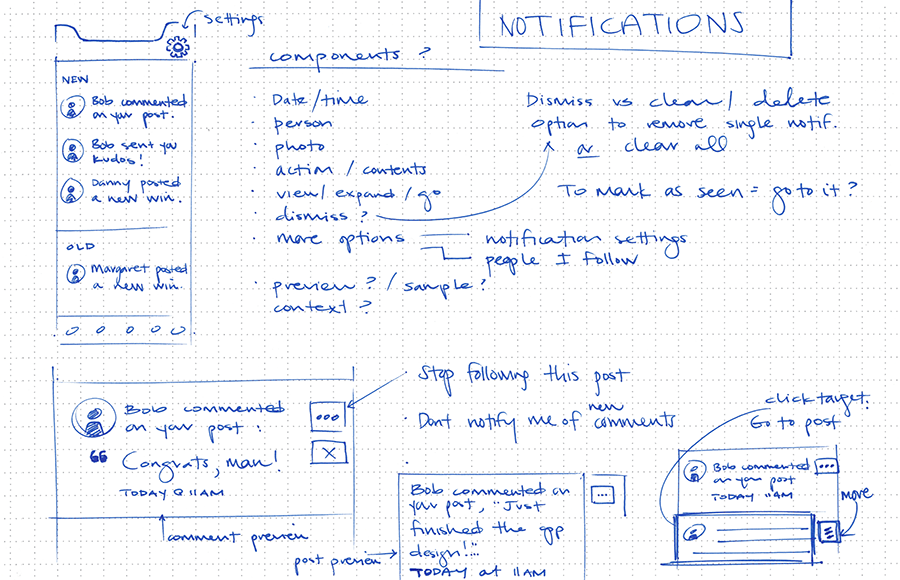 settings
NOTIFICATIONS
NEW
Bob commented
on your post.
Bob sent you
kudos!
Danny posted
a new win.
OLD
Margaret posted
a new win.
components ?
· Date/time
· person
· photo
· action / contents
· view/ expand / go
· dismiss ?
· more options
notification settings
people I follow
· preview ? / sample ?
context ?
Dismiss vs clear / delete
option to remove single notif.
or clear all
To mark as seen = go to it ?
Bob commented
on your post :
“ Congrats, man!
TODAY @ 11AM
comment preview
· Stop following this post
· Dont notify me of new comments
·
post preview
Bob commented on
your post, "Just
finished the app
design!..."
TODAY at 11AM
click target.
Go to post
Bob commented
on your post
TODAY 11AM
move